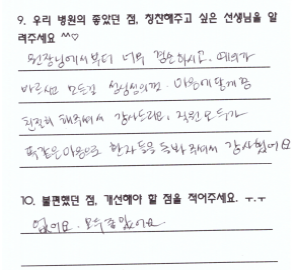 9. 우리 병원의 좋았던 점, 칭찬해주고 싶은 선생님을 알
려주세요 ^^♡
원장님에서부터 너무 겸손하시고, 예의가
바르시고 모든걸 성심성의껏 마음에 닿게끔
친절히 해주셔서 감사드리고, 직원 모두가
똑같은 마음으로 환자들을 돌봐 주셔서 감사했어요
10. 불편했던 점, 개선해야 할 점을 적어주세요. ㅜ.ㅜ
없어요. 모두 좋았어요